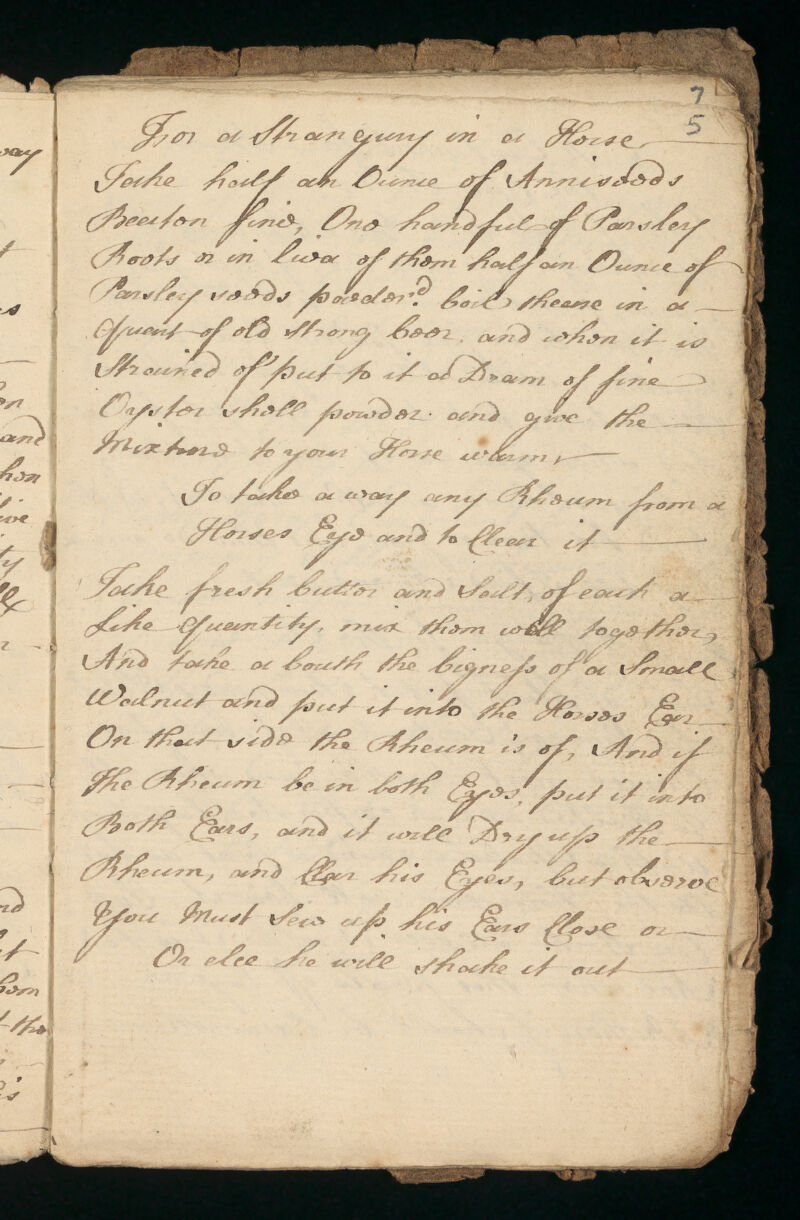 7
5
For a Strangury in a Horse
Take half an Ounce of Anniseeds
Beeton fine, One handful of Parsley
Roots or in liea of them half an Ounce of
Parsley seeds powder'd. boil theese in a
Quart of old strong beer. and when it is
Strained of put to it a Dram of fine
Oyster shell powder. and give the
Mixture to your Horse warm
To take a way any Rheum from a
Horses Eye and to Clear it
Take fresh butter and Salt, of each a
Like Quantity, mix them well together,
And take a bouth the bigness of a Small
Walnut and put it into the Horses Ear
On that side the Rheum is of, And if
The Rheum be in both Eyes, put it into
Both Ears, and it will Dry up the
Rheum, and Clar his Eyes, but observe
You Must Sew up his Ears Close or
Or elce he will shake it out
way
and